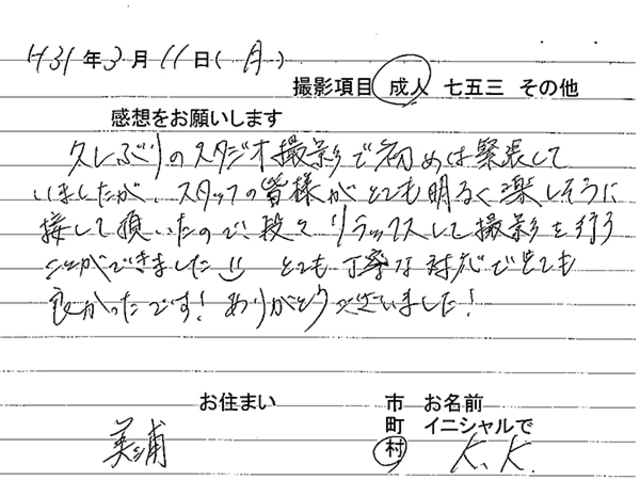 H31年3月11日(月)
撮影項目 成人 七五三 その他
感想をお願いします
久しぶりのスタジオ撮影で初めは緊張して
いましたが、スタッフの皆様がとても明るく楽しそうに
接して頂いたので、段々リラックスして撮影を行う
ことができました とても丁寧な対応でとても
良かったです! ありがとうございました!
お住まい 市 お名前
町 イニシャルで
美浦 村 K.K.